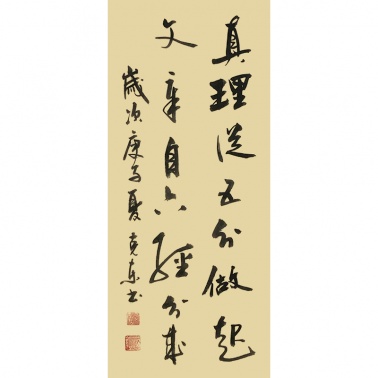 真理從五分做起
文章自六經分成
歲次庚子夏克东书